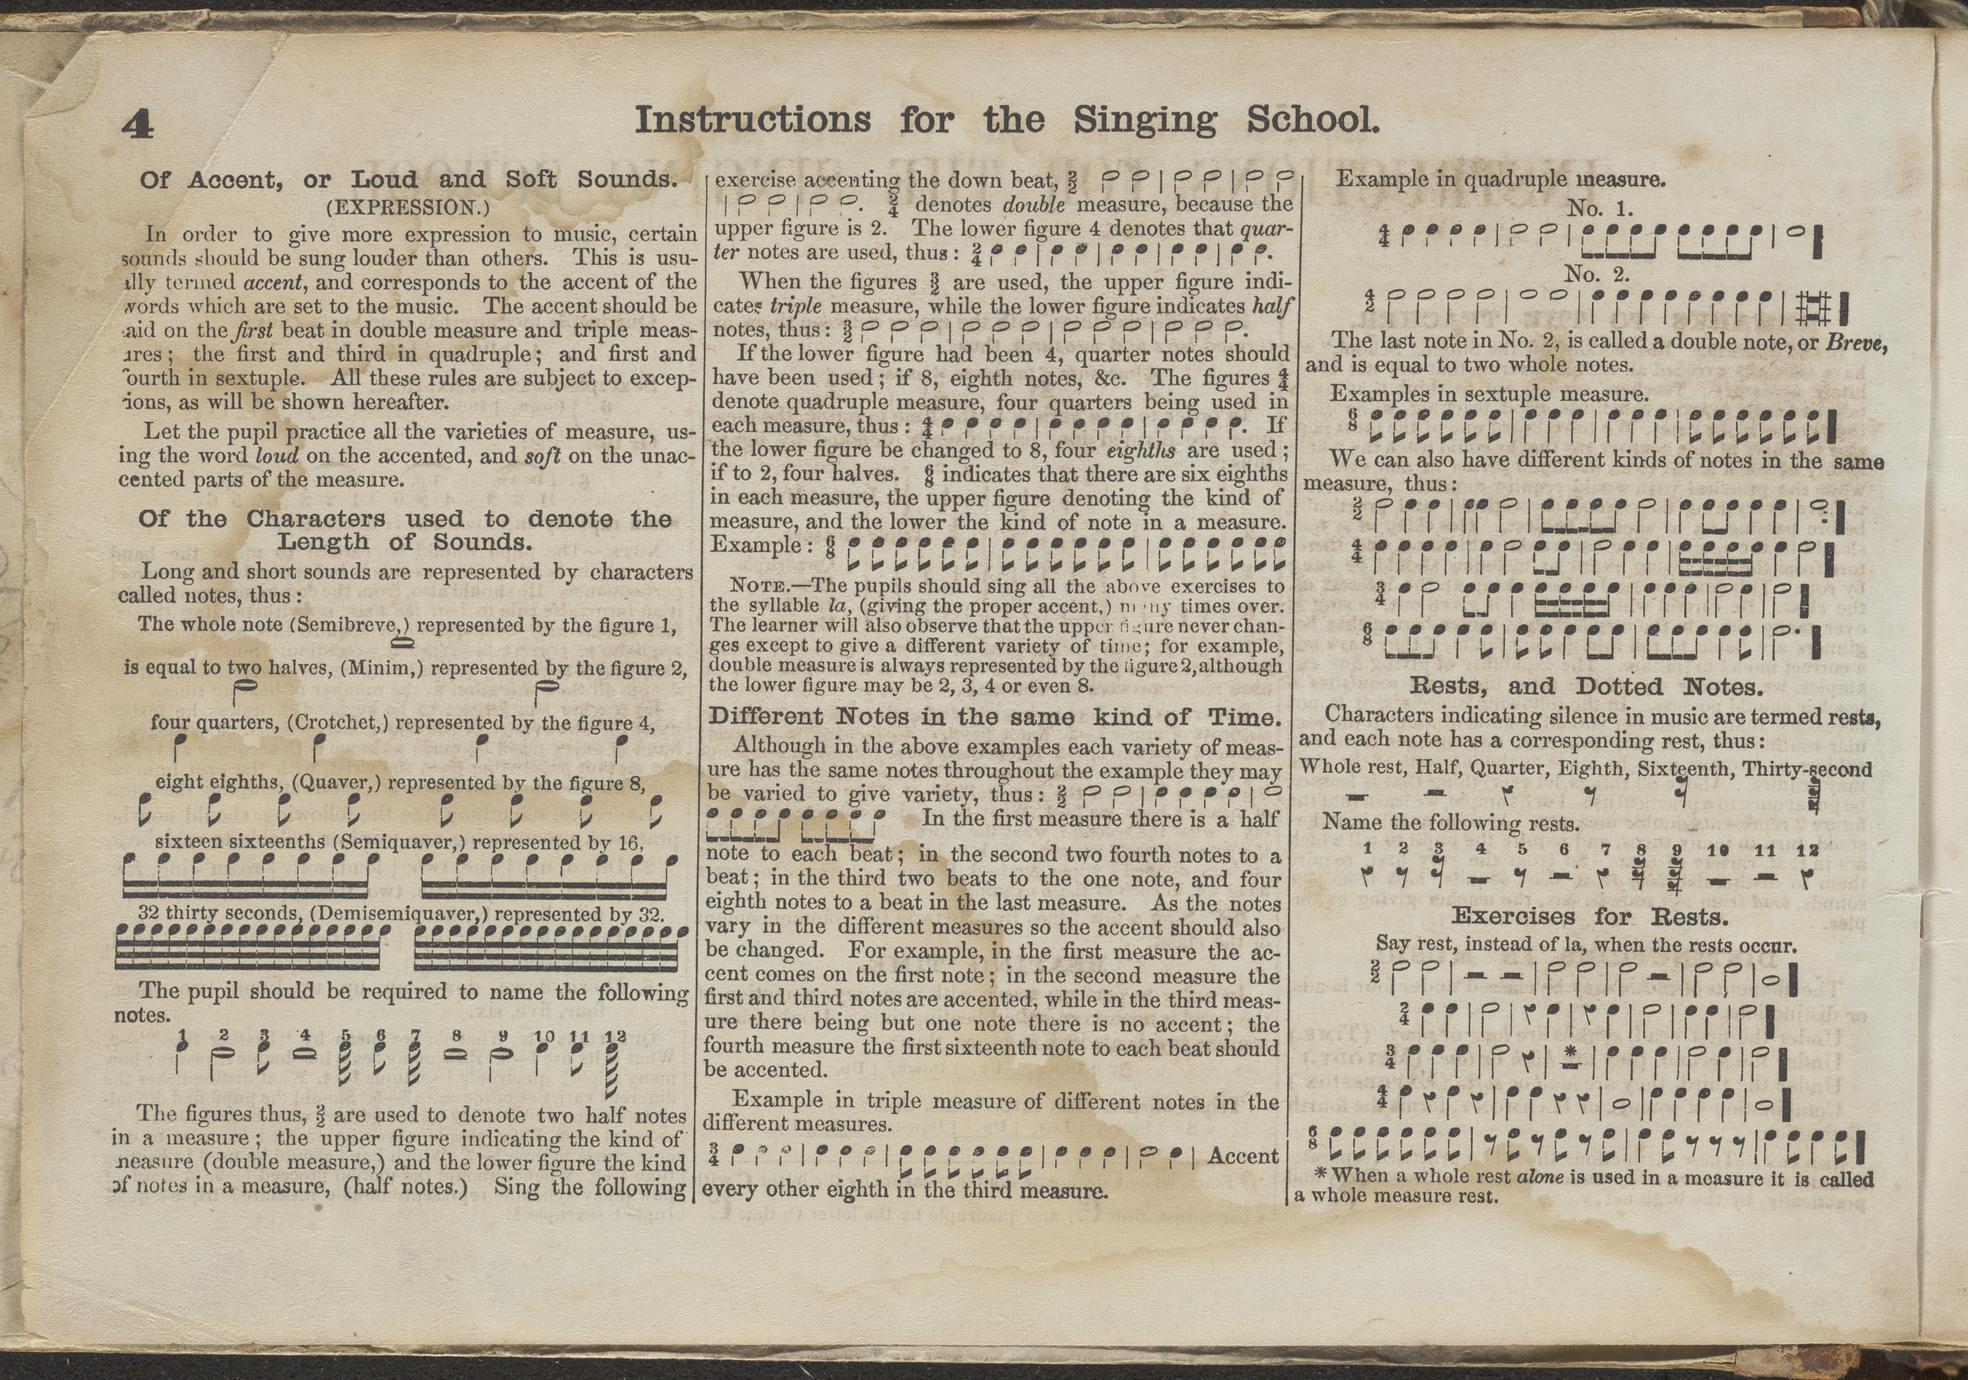 4
Instructions for the Singing School.
Of Accent, or Loud and Soft Sounds.
(EXPRESSION.)
In order to give more expression to music, certain
sounds should be sung louder than others. This is usu-
ally termed accent, and corresponds to the accent of the
words which are set to the music. The accent should be
aid on the first beat in double measure and triple meas-
ures; the first and third in quadruple; and first and
fourth in sextuple. All these rules are subject to excep-
ions, as will be shown hereafter.
Let the pupil practice all the varieties of measure, us-
ing the word loud on the accented, and soft on the unac-
cented parts of the measure.
Of the Characters used to denote the
Length of Sounds.
Long and short sounds are represented by characters
called notes, thus:
The whole note (Semibreve,) represented by the figure 1,
is equal to two halves, (Minim,) represented by the figure 2,
four quarters, (Crotchet,) represented by the figure 4,
eight eighths, (Quaver,) represented by the figure 8,
sixteen sixteenths (Semiquaver,) represented by 16,
32 thirty seconds, (Demisemiquaver,) represented by 32.
The pupil should be required to name the following
notes.
1 2 3 4 5 6 7 8 9 10 11 12
The figures thus, 2/2 are used to denote two half notes
in a measure; the upper figure indicating the kind of
measure (double measure,) and the lower figure the kind
of notes in a measure, (half notes.) Sing the following
exercise accenting the down beat, 2/2
2/4 denotes double measure, because the
upper figure is 2. The lower figure 4 denotes that quar-
ter notes are used, thus: 2/4
When the figures 3/2 are used, the upper figure indi-
cates triple measure, while the lower figure indicates half
notes, thus: 3/2
If the lower figure had been 4, quarter notes should
have been used; if 8, eighth notes, &c. The figures 4/4
denote quadruple measure, four quarters being used in
each measure, thus: 4/4 If
the lower figure be changed to 8, four eighths are used;
if to 2, four halves. 6/8 indicates that there are six eighths
in each measure, the upper figure denoting the kind of
measure, and the lower the kind of note in a measure.
Example: 6/8
NOTE.—The pupils should sing all the above exercises to
the syllable la, (giving the proper accent,) many times over.
The learner will also observe that the upper figure never chan-
ges except to give a different variety of time; for example,
double measure is always represented by the figure 2, although
the lower figure may be 2, 3, 4 or even 8.
Different Notes in the same kind of Time.
Although in the above examples each variety of meas-
ure has the same notes throughout the example they may
be varied to give variety, thus: 2/2
In the first measure there is a half
note to each beat; in the second two fourth notes to a
beat; in the third two beats to the one note, and four
eighth notes to a beat in the last measure. As the notes
vary in the different measures so the accent should also
be changed. For example, in the first measure the ac-
cent comes on the first note; in the second measure the
first and third notes are accented, while in the third meas-
ure there being but one note there is no accent; the
fourth measure the first sixteenth note to each beat should
be accented.
Example in triple measure of different notes in the
different measures.
3/4 Accent
every other eighth in the third measure.
Example in quadruple measure.
No. 1.
4/4
No. 2.
4/2
The last note in No. 2, is called a double note, or Breve,
and is equal to two whole notes.
Examples in sextuple measure.
6/8
We can also have different kinds of notes in the same
measure, thus:
2/2
4/4
3/4
6/8
Rests, and Dotted Notes.
Characters indicating silence in music are termed rests,
and each note has a corresponding rest, thus:
Whole rest, Half, Quarter, Eighth, Sixteenth, Thirty-second
Name the following rests.
1 2 3 4 5 6 7 8 9 10 11 12
Exercises for Rests.
Say rest, instead of la, when the rests occur.
2/2
2/4
3/4 *
4/4
6/8
* When a whole rest alone is used in a measure it is called
a whole measure rest.